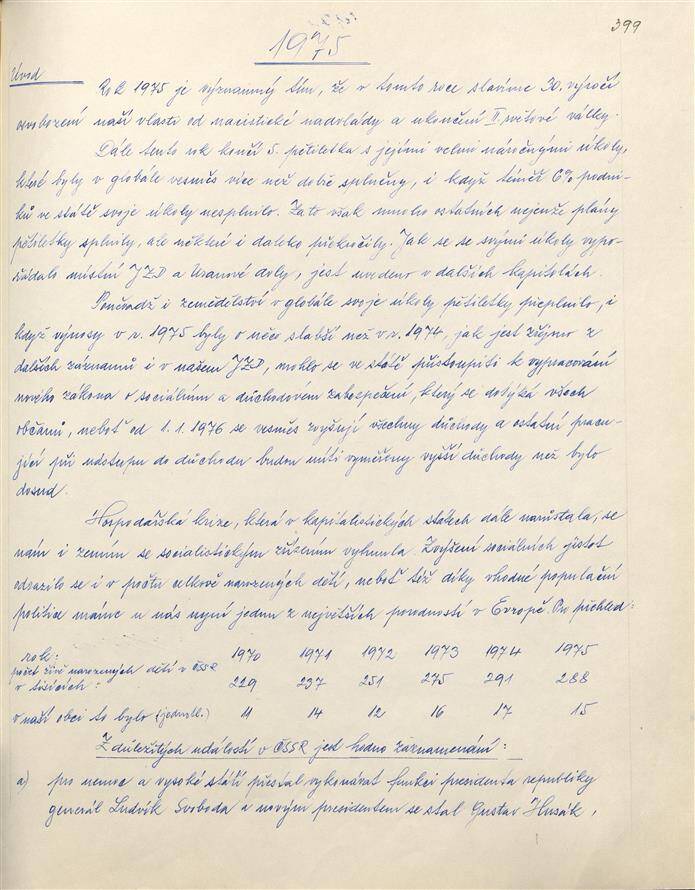 399
1975
Úvod
Rok 1975 je významný tím, že v tomto roce slavíme 30. výročí
osvobození naší vlasti od nacistické nadvlády a ukončení II. světové války.
Dále tento rok končí 5. pětiletka s jejími velmi náročnými úkoly,
které byly v globále vesměs více než dobře splněny, i když téměř 6% podni-
ků ve státě svoje úkoly nesplnilo. Zato však mnoho ostatních nejenže plány
pětiletky splnily, ale některé i daleko překročily. Jak se se svými úkoly vypo-
řádalo místní JZD a Uranové doly, jest uvedeno v dalších kapitolách.
Poněvadž i zemědělství v globále svoje úkoly pětiletky přeplnilo, i
když výnosy v r. 1975 byly o něco slabší než v r. 1974, jak jest zřejmo z
dalších záznamů i v našem JZD, mohlo se ve státě přistoupiti k vypracování
nového zákona o sociálním a důchodovém zabezpečení, který se dotýká všech
občanů, neboť od 1.1.1976 se vesměs zvyšují všechny důchody a ostatní pracu-
jící při nástupu do důchodu budou míti vyměřeny vyšší důchody než bylo
dosud.
Hospodářská krize, která v kapitalistických státech dále narůstala, se
nám i zemím se socialistickým zřízením vyhnula. Zvýšení sociálních jistot
odrazilo se i v počtu celkově narozených dětí, neboť též díky vhodné populační
politice máme u nás nyní jednu z největších porodností v Evropě. Pro přehled:
rok: 1970 1971 1972 1973 1974 1975
počet živě narozených dětí v ČSSR
v tisících: 229 237 251 275 291 288
v naší obci to bylo (jednotl.) 11 14 12 16 17 15
Z důležitých událostí v ČSSR jest hodno zaznamenání:
a) pro nemoc a vysoké stáří přestal vykonávat funkci presidenta republiky
generál Ludvík Svoboda a novým presidentem se stal Gustav Husák,